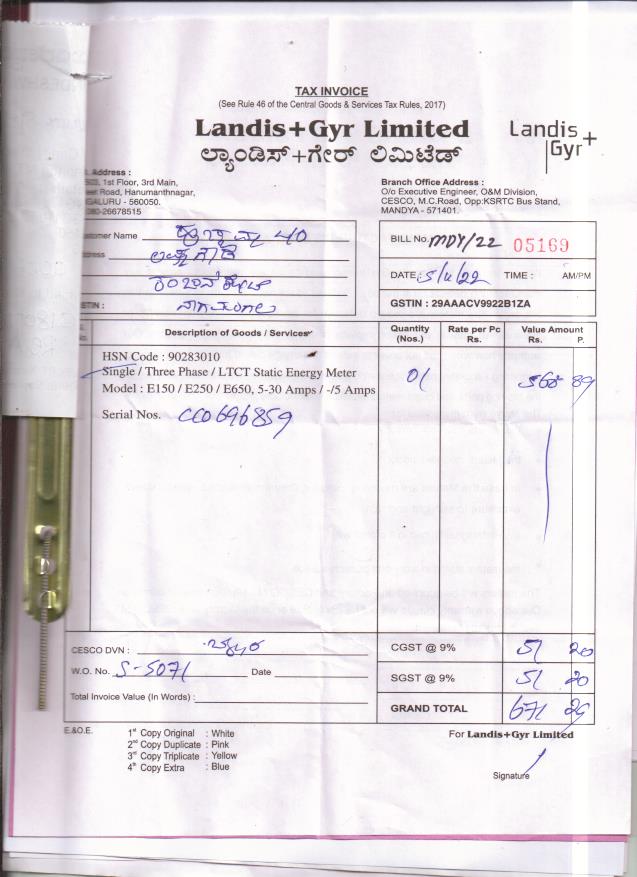 TAX INVOICE
(See Rule 46 of the Central Goods & Services Tax Rules, 2017)
Landis+Gyr Limited
ಲ್ಯಾಂಡಿಸ್+ಗೇರ್ ಲಿಮಿಟೆಡ್
Landis+
Gyr
Address :
1st Floor, 3rd Main,
Road, Hanumanthnagar,
- 560050.
080-26678515
Branch Office Address :
O/o Executive Engineer, O&M Division,
CESCO, M.C.Road, Opp:KSRTC Bus Stand,
MANDYA - 571401.
Customer Name
BILL No. MDY/22 05169
DATE : TIME : AM/PM
GSTIN : 29AAACV9922B1ZA
Description of Goods / Services
Quantity (Nos.)
Rate per Pc Rs.
Value Amount Rs. P.
HSN Code : 90283010
Single / Three Phase / LTCT Static Energy Meter 01 568 89
Model : E150 / E250 / E650, 5-30 Amps / -/5 Amps
Serial Nos. CC0696859
CESCO DVN :
CGST @ 9% 51 20
W.O. No. S-5071 Date
SGST @ 9% 51 20
Total Invoice Value (In Words) :
GRAND TOTAL 671 29
E.&O.E.
1st Copy Original : White
2nd Copy Duplicate : Pink
3rd Copy Triplicate : Yellow
4th Copy Extra : Blue
For Landis+Gyr Limited
Signature